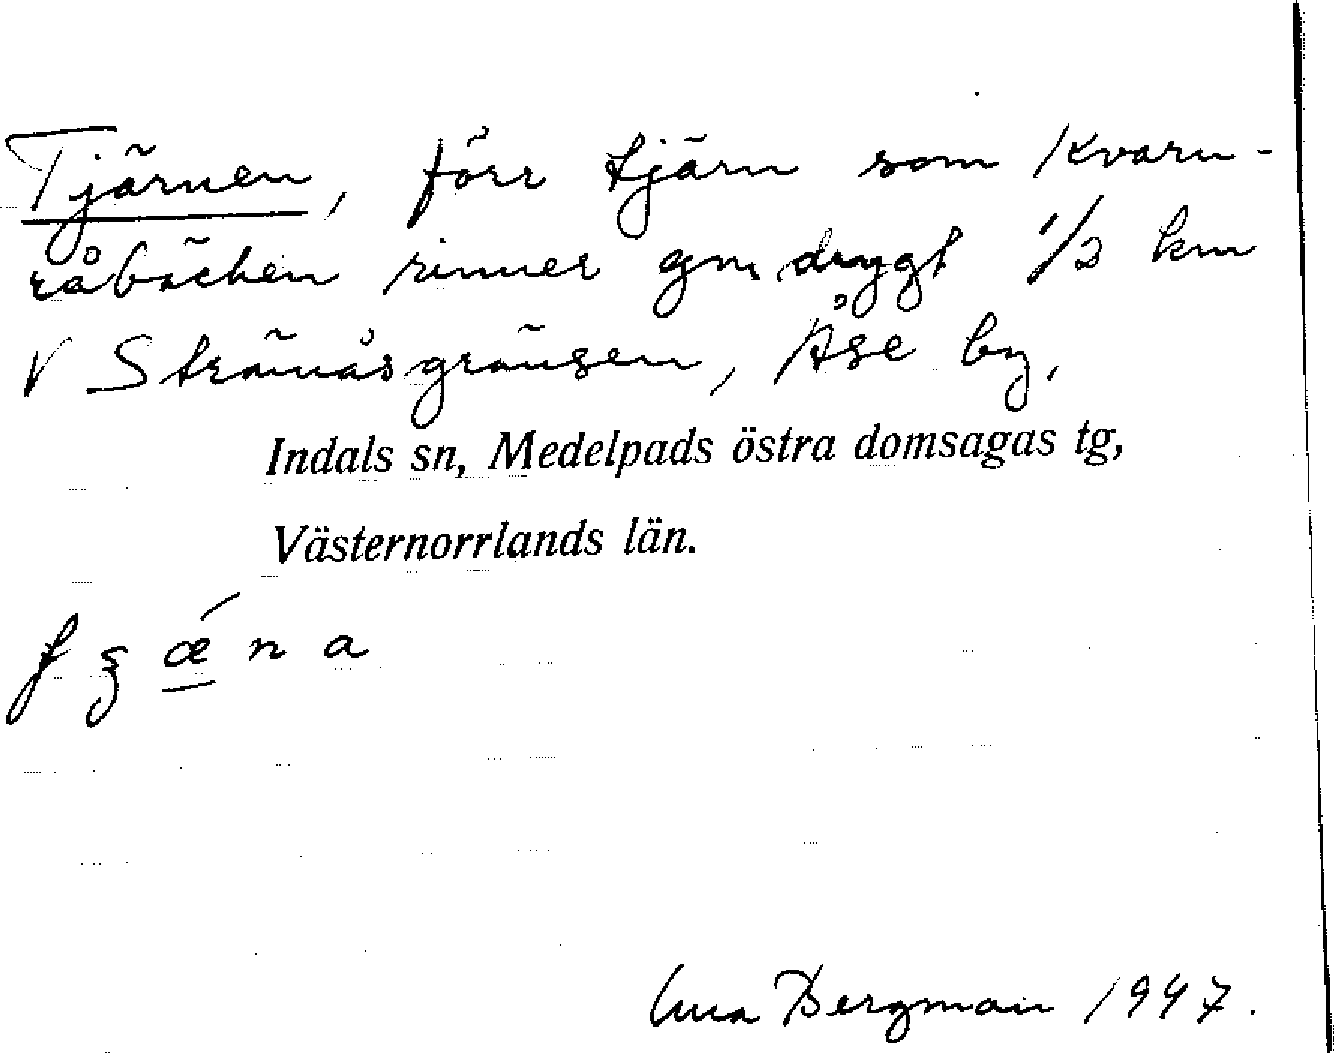 Tjärnen, förr tjärn som Kvarn-
råbäcken rinner gm, drygt 1/2 km
V Stränåsgränsen, Åse by,
Indals sn, Medelpads östra domsagas tg,
Västernorrlands län.
Bergman 1947.